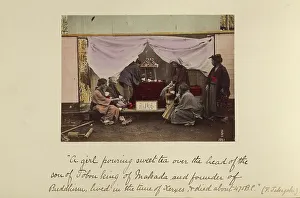 "A girl pouring sweet tea over the head of the
son of Tobon King of Makada and founder of
Buddhism, lived in the time of Xerxes & died about 475 B.C."